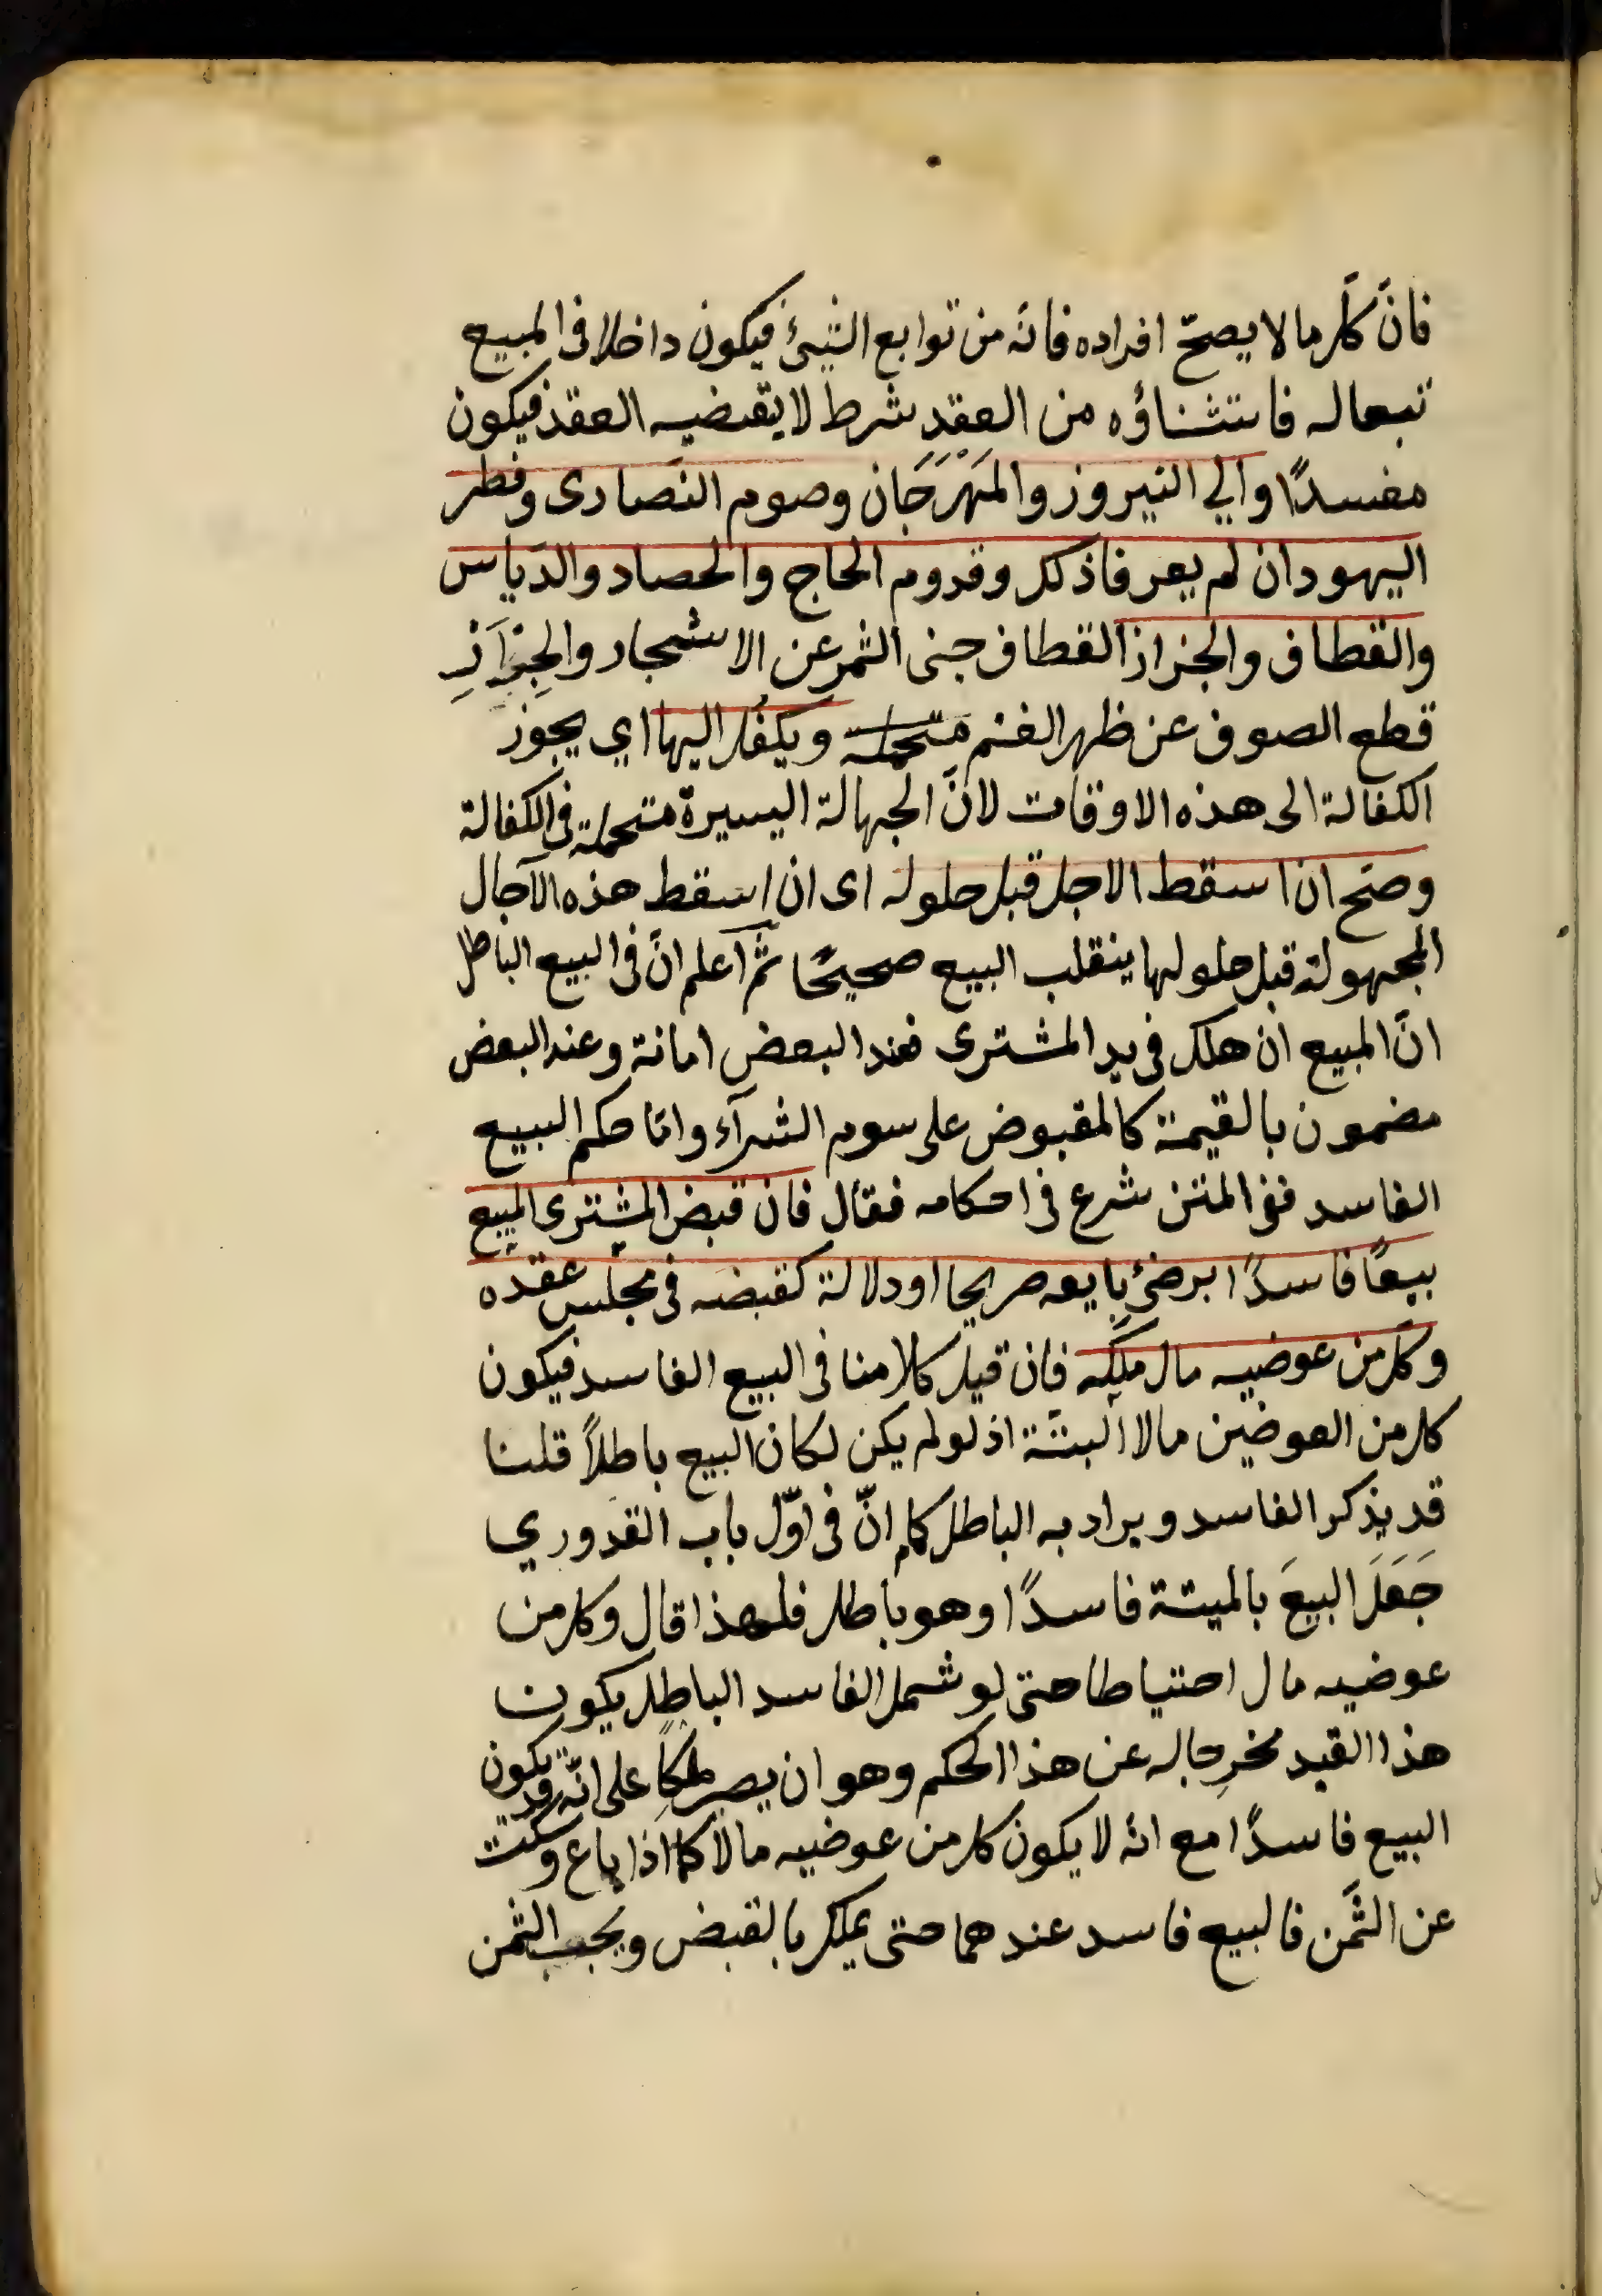 فانّ كلّ ما لا يصحّ افراده فانّه من توابع الشئ فيكون داخلا فى المبيع
تبعا له فاستثناؤه من العقد شرط لا يقتضيه العقد فيكون
مفسدًا والي النيروز والمَهْرَجَان وصوم النصارى وفطر
اليهود ان لم يعرفا ذلك وقدوم الحاج والحصاد والدّياس
والقطاف والجزاز القطاف جنى الثمر عن الاشجار والجِزَازِ
قطع الصوف عن ظهر الغنم ويكفل اليها اي يجوز
الكفالة الى هذه الاوقات لانّ الجهالة اليسيرة متحملة فى الكفالة
وصحّ ان اسقط الاجل قبل حلوله اى ان اسقط هذه الآجال
المجهولة قبل حلولها ينقلب البيع صحيحًا ثمّ اعلم انّ فى البيع الباطل
انّ المبيع ان هلك فى يد المشترى فعند البعض امانة وعند البعض
مضمون بالقيمة كالمقبوض على سوم الشرآء وامّا حكم البيع
الفاسد ففى المتن شرع فى احكامه فقال فان قبض المشترى المبيع
بيعًا فاسدًا برضئ بايعه صريحا او دلالة كقبضه فى مجلس عقده
وكلّ من عوضيه مال ملكه فان قيل كلامنا فى البيع الفاسد فيكون
كل من العوضين مالا البتّة اذ لو لم يكن لكان البيع باطلاً قلنا
قد يذكر الفاسد ويراد به الباطل كما انّ فى اوّل باب القدوري
جَعَلَ البيعَ بالميتة فاسدًا وهو باطل فلهذا قال وكل من
عوضيه مال احتياطا حتى لو شمل الفاسد الباطل يكون
هذا القيد مخرِجا له عن هذا الحكم وهو ان يصير ملكًا على انّه قد يكون
البيع فاسدًا مع انه لا يكون كل من عوضيه مالا كما اذا باع وسكت
عن الثَّمن فالبيع فاسد عندهما حتى يملك بالقبض ويجب الثمن